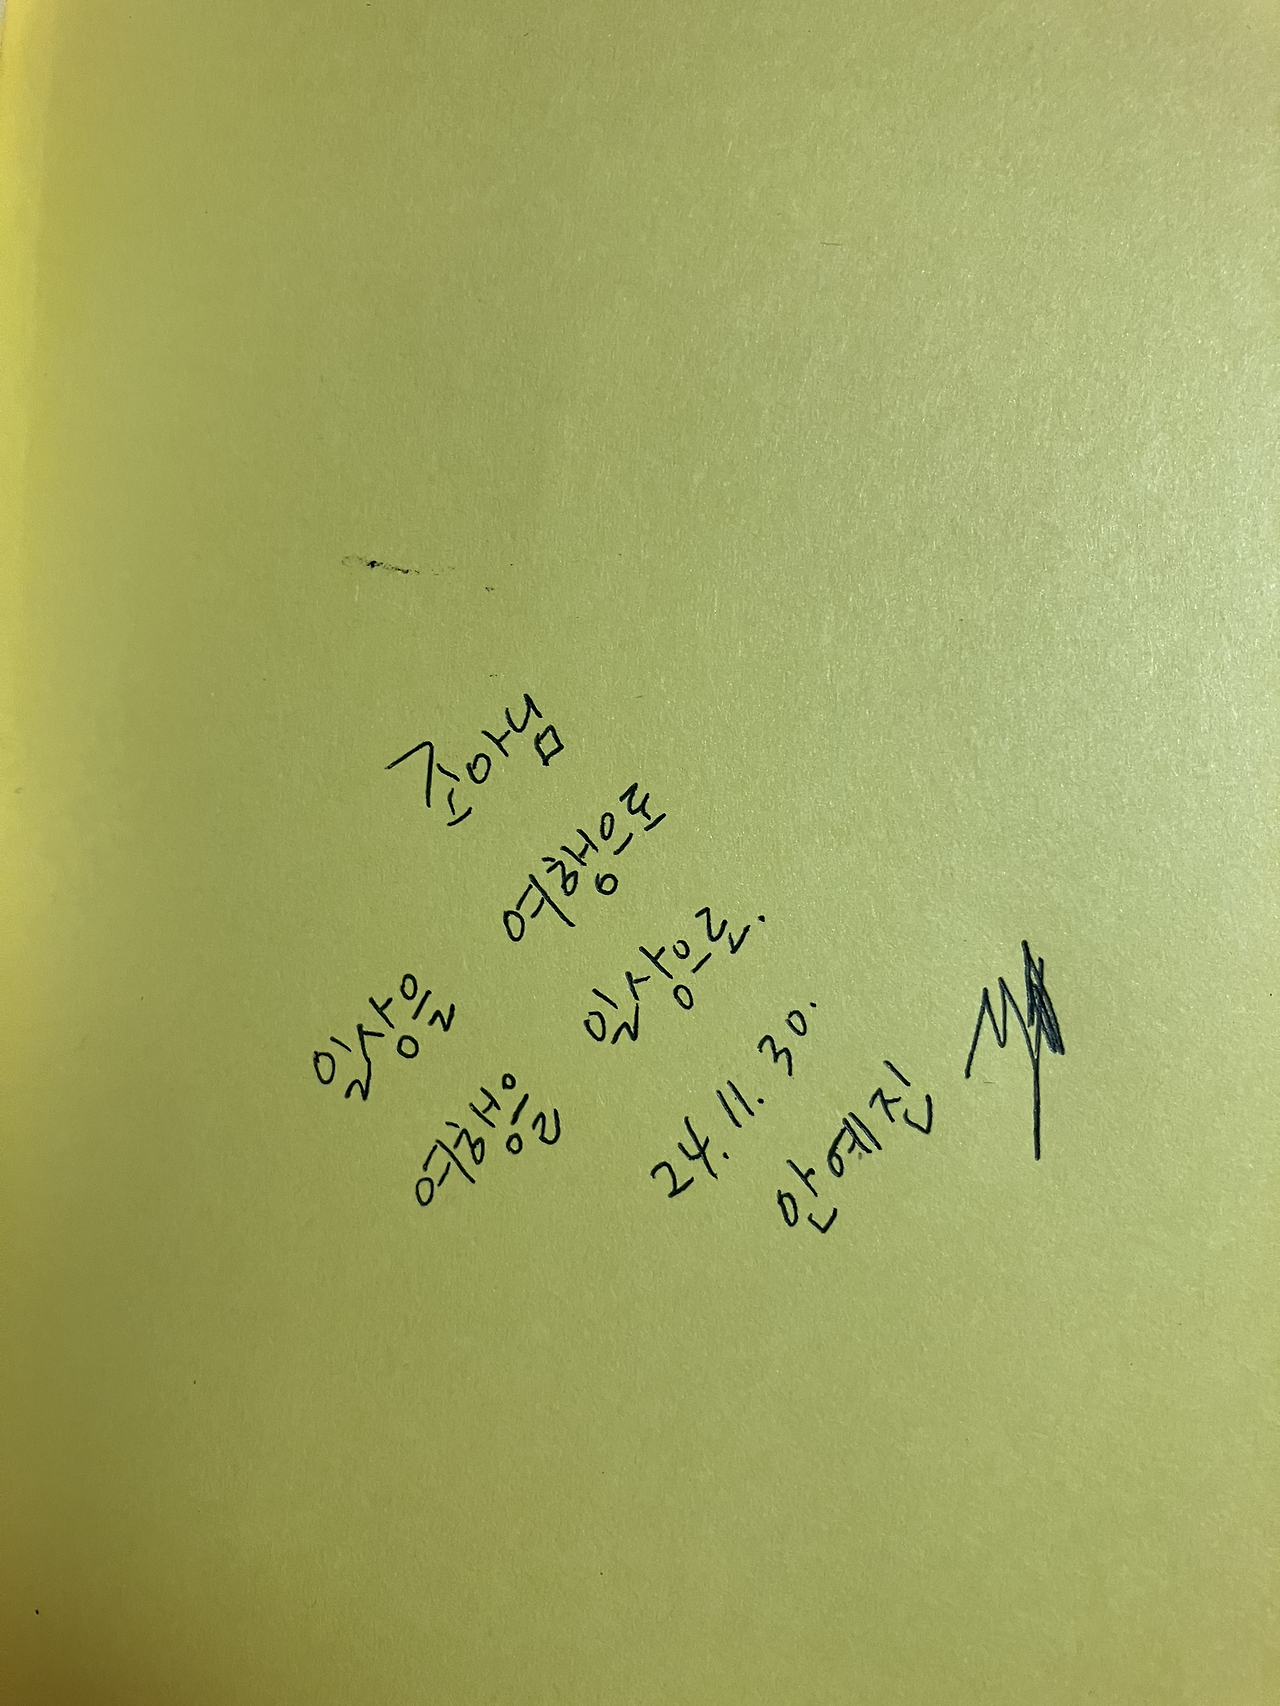 조아님
일상을 여행으로
여행을 일상으로.
24. 11. 30.
안예진